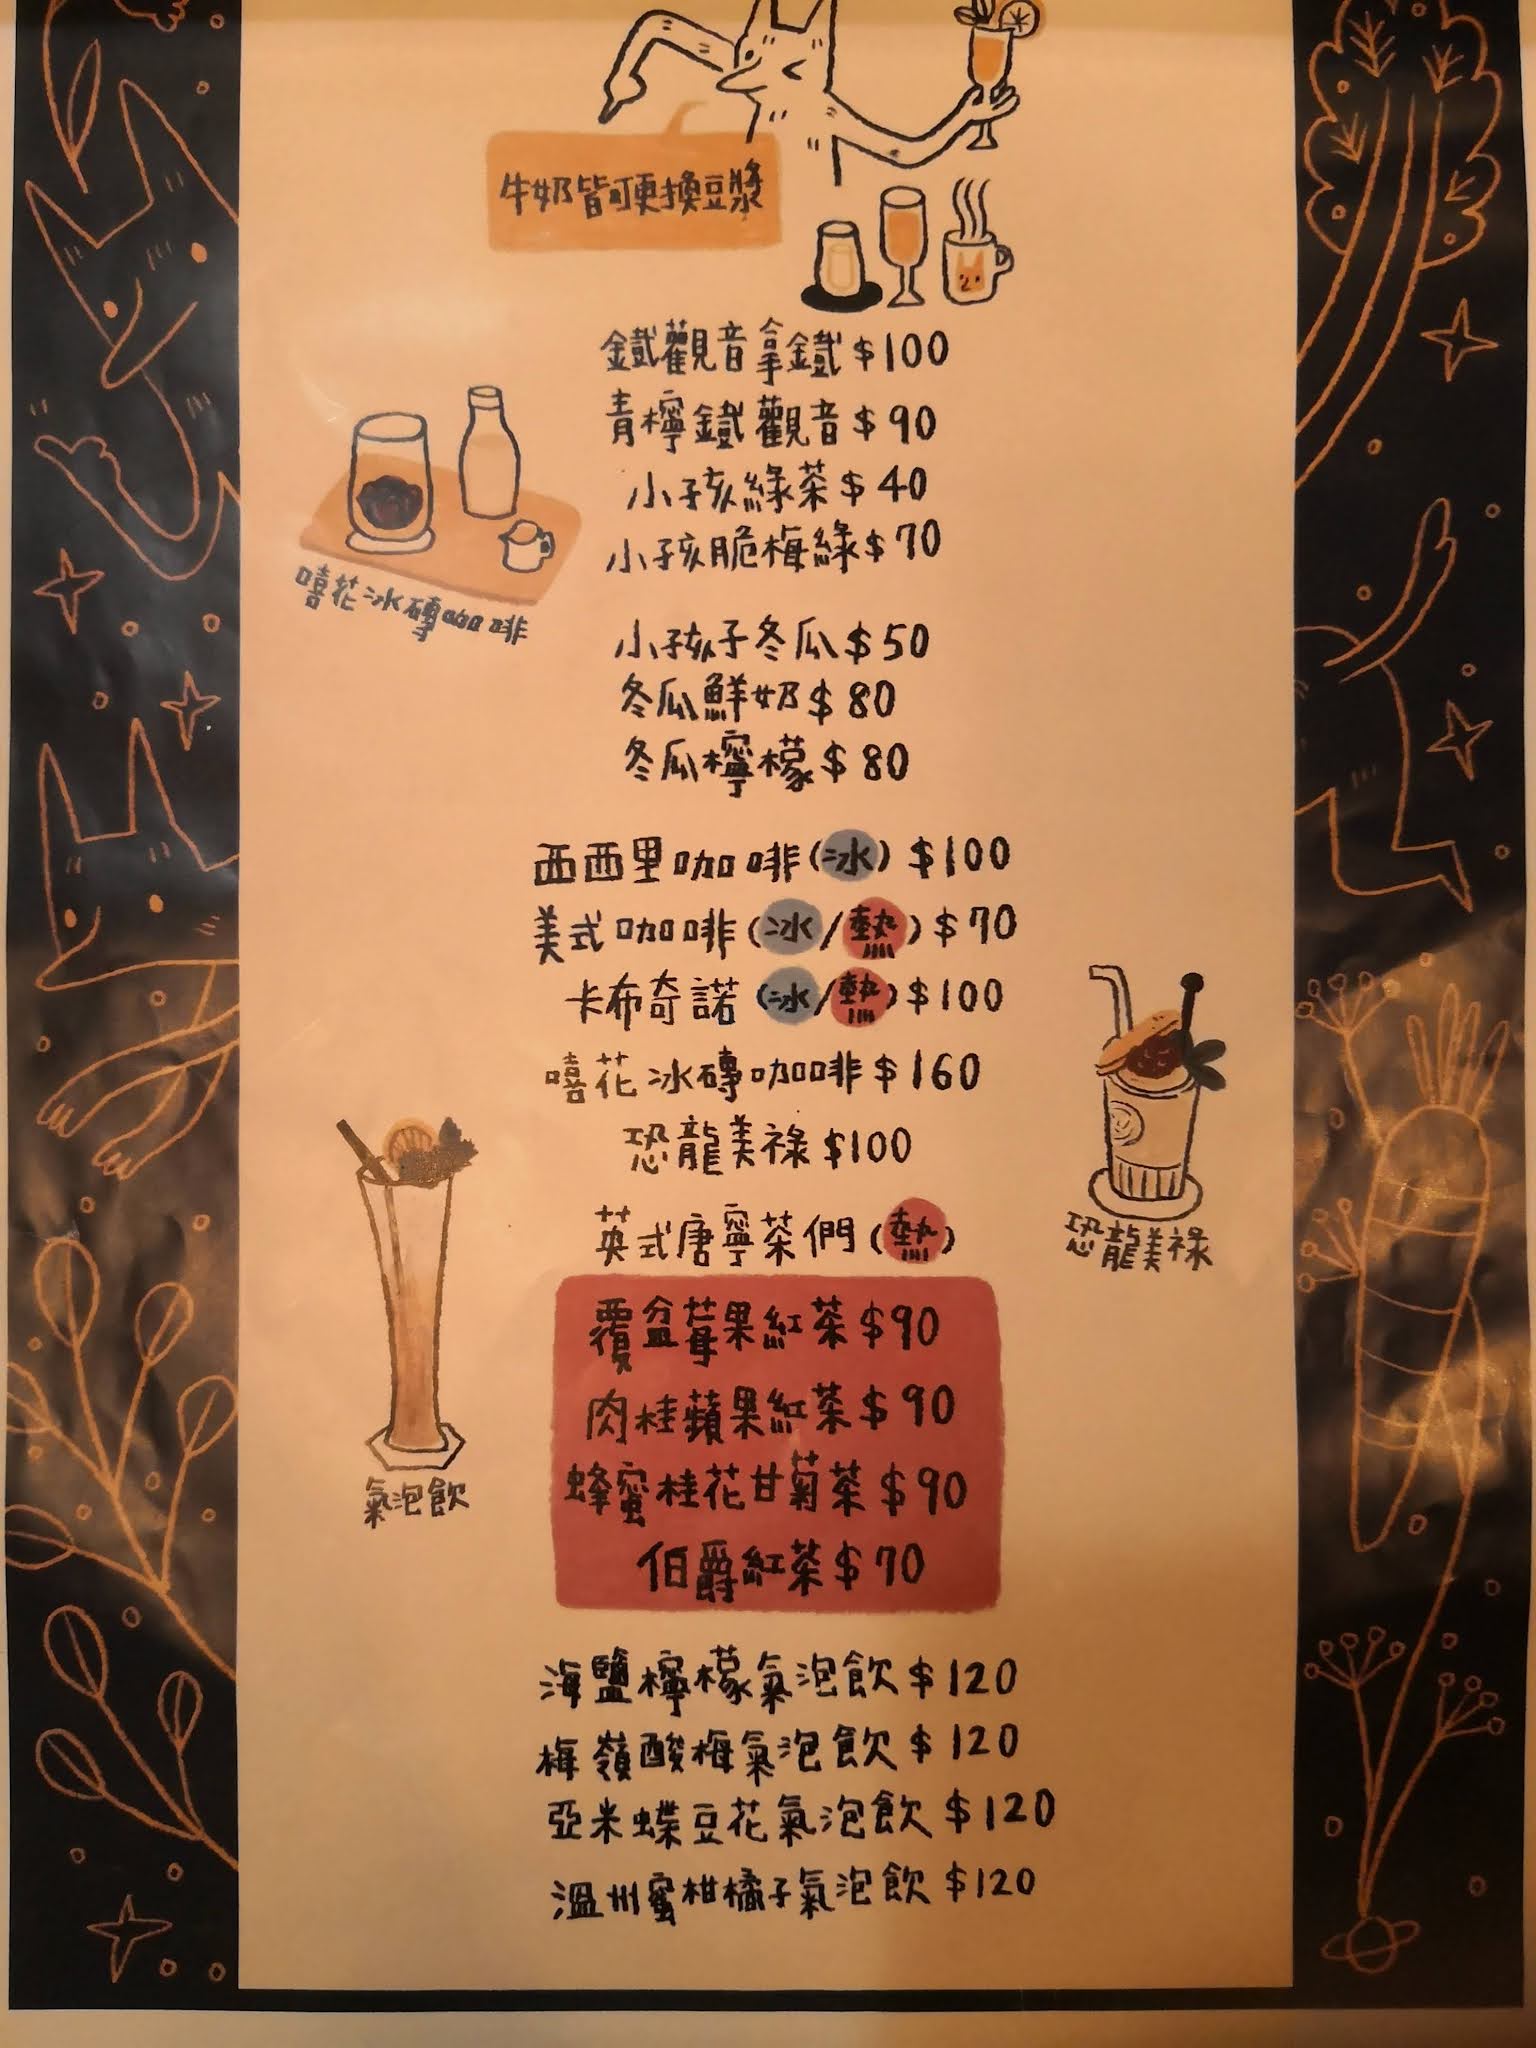 牛奶皆可更換豆漿
鐵觀音拿鐵$100
青檸鐵觀音$90
小孩綠茶$40
小孩脆梅綠$70
嘻花冰磚咖啡
小孩子冬瓜$50
冬瓜鮮奶$80
冬瓜檸檬$80
西西里咖啡(冰) $100
美式咖啡(冰/熱)$70
卡布奇諾(冰/熱)$100
嘻花冰磚咖啡$160
恐龍美祿$100
恐龍美祿
英式唐寧茶們(熱)
覆盆莓果紅茶$90
肉桂蘋果紅茶$90
蜂蜜桂花甘菊茶$90
伯爵紅茶$70
氣泡飲
海鹽檸檬氣泡飲$120
梅嶺酸梅氣泡飲$120
亞米蝶豆花氣泡飲$120
溫州蜜柑橘子氣泡飲$120